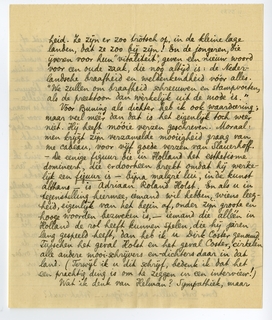 heid. Ze zijn er zoo trotsch op, in de kleine lage
landen, dat ze zoo bij zijn! En de jongeren, die
ijveren voor hun "vitaliteit", geven een nieuw woord
voor een oude zaak, die nog altijd is: de Neder-
landsche braafheid en weldenkendheid vóór alles.
"We zullen om braafheid schreeuwen en stampvoeten,
als de preektoon dan werkelijk uit de mode is."
Voor Buning als dichter heb ik ook waardeering;
maar veel meer dan dat is het eigenlijk toch wee
niet. Hij heeft mooie verzen geschreven. Maraal
men krijgt zijn verzamelde mooiigheid graag van
me cadeau, voor vijf goede verzen van Slauerhoff.
- De eenige figuur die in Holland het estheterme
domineert, die er doorheen breekt omdat hij werke-
lijk een figuur is - bijna malgré lui, in de kunst
althans - is Adriaan Roland Holst. En als u in
tegenstelling hiermee, iemand wil hebben, wiens leeg-
heid, eigenlijk van het begin af, onder zijn groote en
hooge woorden bezweken is, - iemand die alleen in
Holland de rol heeft kunnen spelen, die hij jaren
lang gespeeld heeft, dan heb ik u Dirk Coster genoemd.
Tusschen het geval Holst en het geval Coster, cirkelen
alle andere mooi-schrijvers en -dichters daar in dat
land. (Terwijl ik u dat schrijf, bedenk ik dat het
een prachtig ding is om te zeggen in een interview!)
Wat ik denk van Helman? Sympathiek, maar